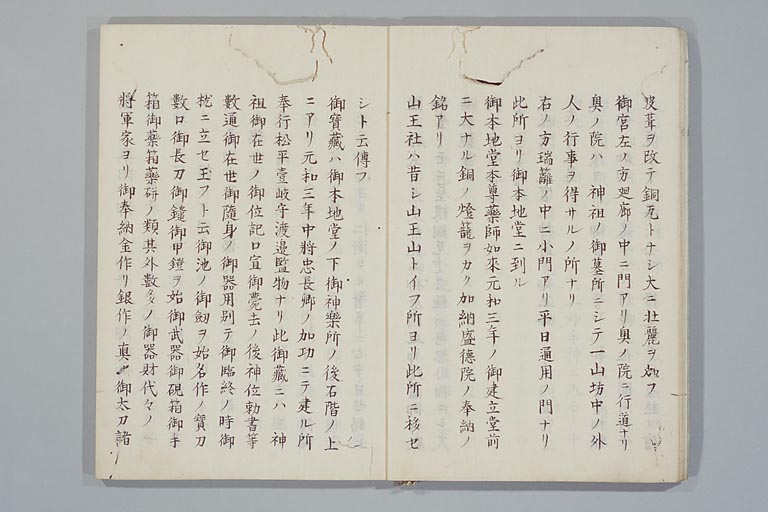 皮葺ヲ改テ銅瓦トナシ大ニ壮麗ヲ加フ
御宮左ノ方廻廊ノ中ニ門アリ奥ノ院ニ行道ナリ
奥ノ院ハ 神祖ノ御墓所ニシテ一山坊中ノ外
人ノ行事ヲ得サルノ所ナリ
右ノ方瑞籬ノ中ニ小門アリ平日通用ノ門ナリ
此所ヨリ御本地堂ニ到ル
御本地堂本尊薬師如来元和三年ノ御建立堂前
ニ大ナル銅ノ燈籠ヲカク加納盛徳院ノ奉納ノ
銘アリ
山王社ハ昔シ山王山トイフ所ヨリ此所ニ移セ
シト云傳フ
御寳藏ハ御本地堂ノ下御神楽所ノ後石階ノ上
ニアリ元和三年中將忠長卿ノ加功ニテ建ル所
奉行松平壹岐守渡邉監物ナリ此御藏ニハ 神
祖御在世ノ御位記口宣御薨去ノ後神位勅書等
數通御在世御隨身ノ御器用別テ御臨終ノ時御
枕ニ立セ玉フト云御池ノ御劔ヲ始名作ノ寳刀
數口御長刀御鎗御甲鎧ヲ始御武器御硯箱御手
箱御薬箱薬研ノ類其外數多ノ御器財代々ノ
將軍家ヨリ御奉納金作リ銀作ノ真ノ御太刀諸